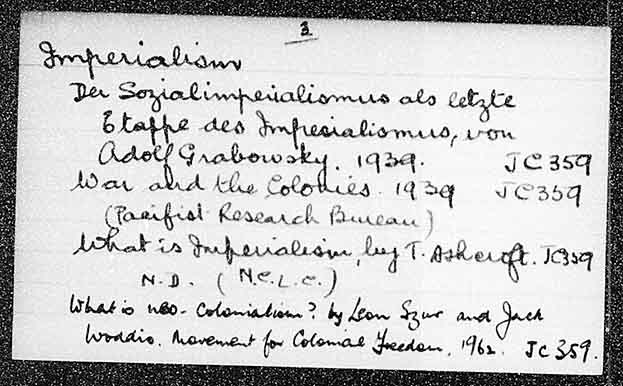 3
Imperialism
Der Sozialimperialismus als letzte
Etappe des Imperialismus, von
Adolf Grabowsky. 1939. JC359
War and the Colonies. 1939 JC359
(Pacifist Research Bureau)
What is Imperialism, by T. Ashcroft. JC359
N.D. (N.C.L.C.)
What is neo-Colonialism? by Leon Szur and Jack
Woddis. Movement for Colonial Freedom, 1962. JC359.